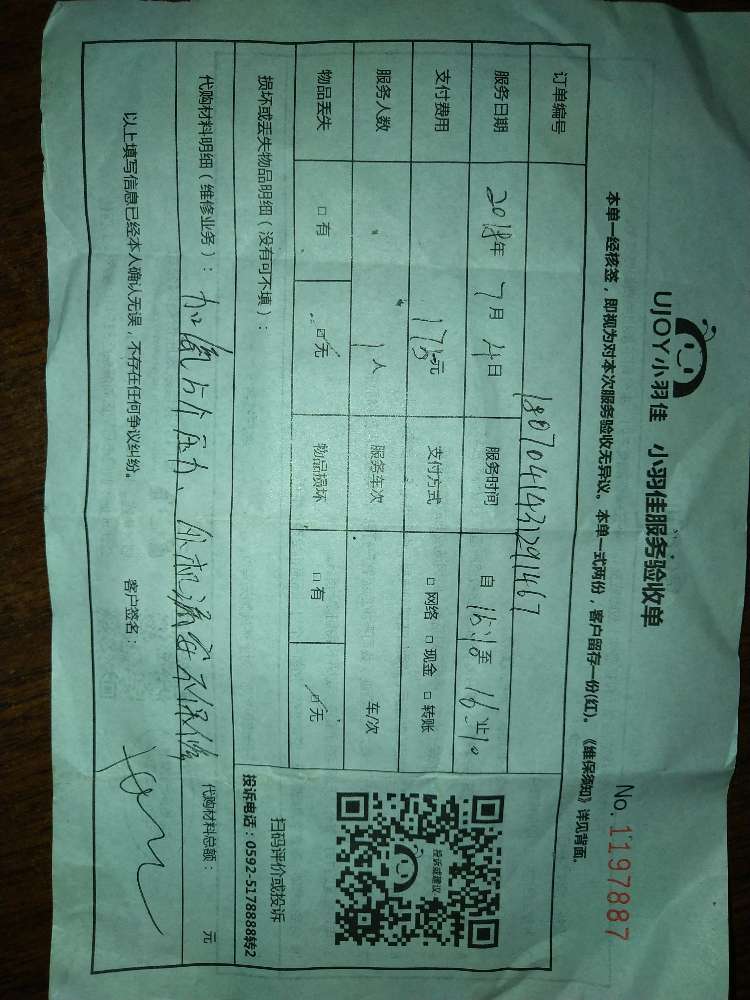 UJOY小羽佳 小羽佳服务验收单
No. 1197887
本单一经核签，即视为对本次服务验收无异议。本单一式两份，客户留存一份(红)。《维保须知》详见背面。
订单编号
服务日期 2018年 7月 4日 服务时间 自 至
支付费用 175元 支付方式 □网络 □现金 □转账
服务人数 1人 服务车次 车/次
物品丢失 □有 □无 物品损坏 □有 □无
损坏或丢失物品明细（没有可不填）：
代购材料明细（维修业务）：加氟5个压力、外机 不保修 代购材料总额： 元
以上填写信息已经本人确认无误，不存在任何争议纠纷。 客户签名：
投诉或建议
扫码评价或投诉
投诉电话：0592-5178888转2